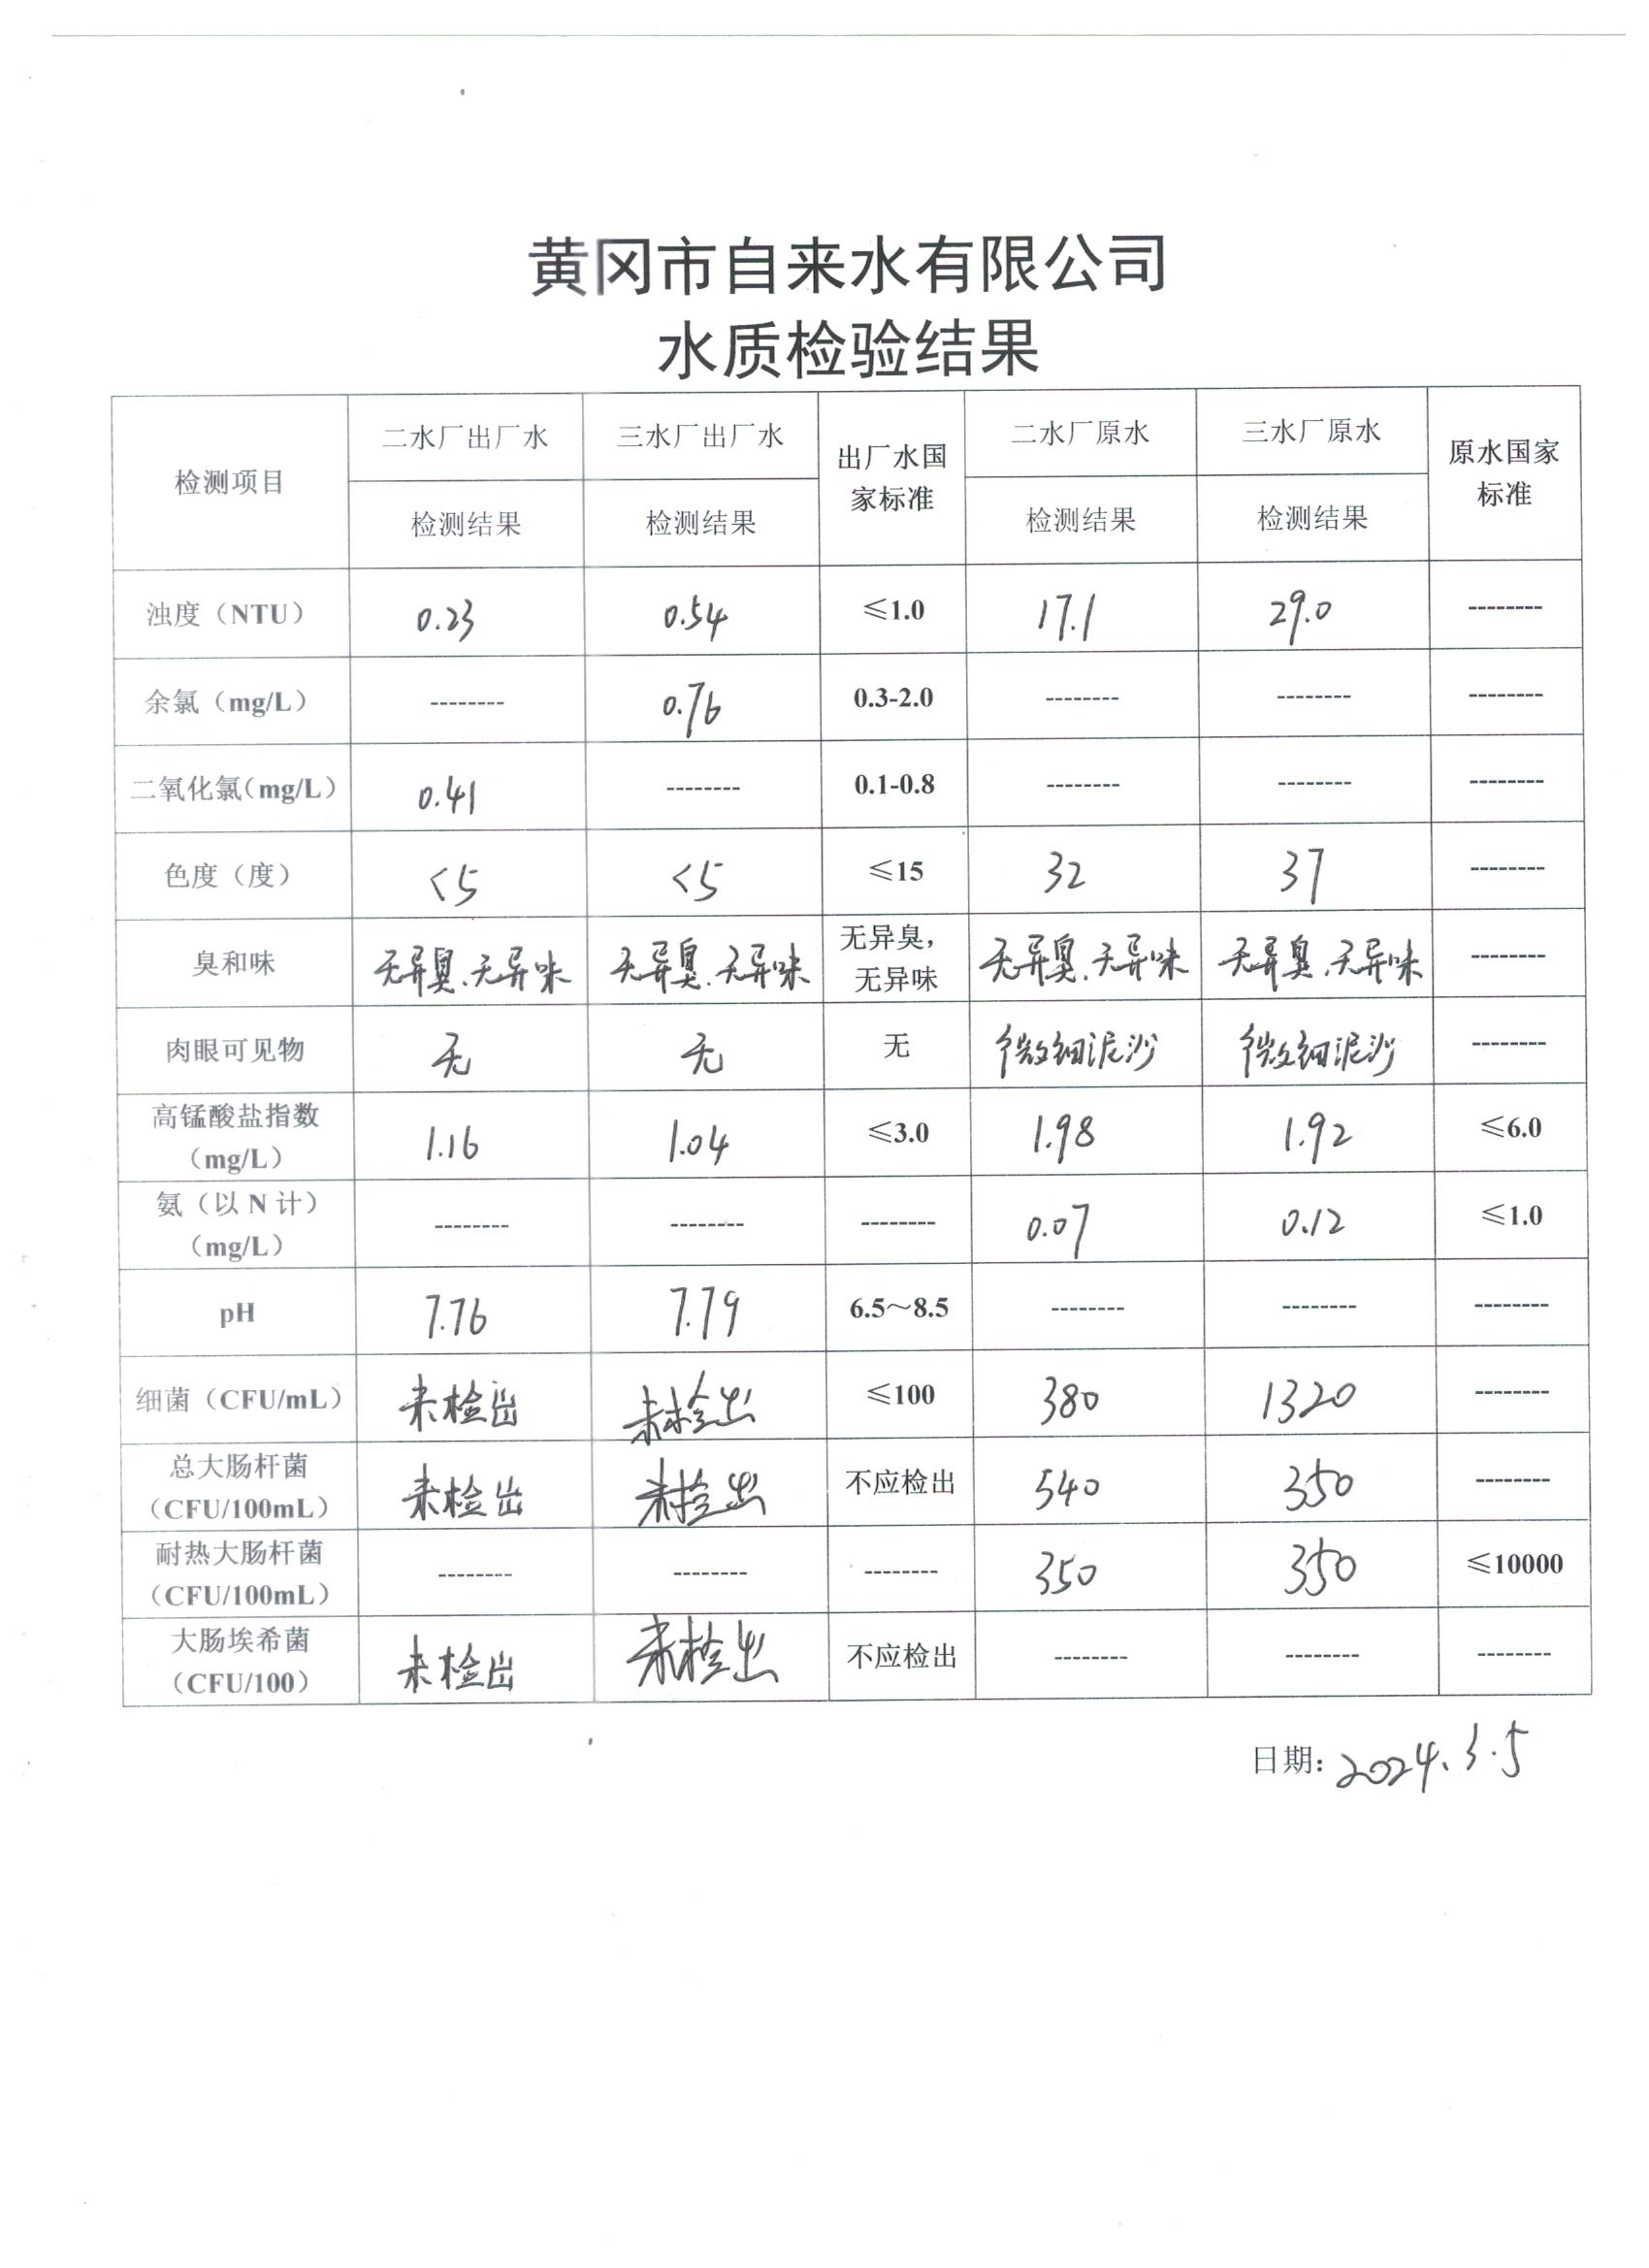 黄冈市自来水有限公司
水质检验结果
检测项目 二水厂出厂水 三水厂出厂水 出厂水国家标准 二水厂原水 三水厂原水 原水国家标准
检测结果 检测结果 检测结果 检测结果
浊度（NTU） 0.23 0.54 ≤1.0 17.1 29.0 --------
余氯（mg/L） -------- 0.76 0.3-2.0 -------- -------- --------
二氧化氯（mg/L） 0.41 -------- 0.1-0.8 -------- -------- --------
色度（度） <5 <5 ≤15 32 37 --------
臭和味 无异臭.无异味 无异臭.无异味 无异臭，无异味 无异臭.无异味 无异臭.无异味 --------
肉眼可见物 无 无 无 微细泥沙 微细泥沙 --------
高锰酸盐指数（mg/L） 1.16 1.04 ≤3.0 1.98 1.92 ≤6.0
氨（以 N 计）（mg/L） -------- -------- -------- 0.07 0.12 ≤1.0
pH 7.76 7.79 6.5～8.5 -------- -------- --------
细菌（CFU/mL） 未检出 未检出 ≤100 380 1320 --------
总大肠杆菌（CFU/100mL） 未检出 未检出 不应检出 540 350 --------
耐热大肠杆菌（CFU/100mL） -------- -------- -------- 350 350 ≤10000
大肠埃希菌（CFU/100） 未检出 未检出 不应检出 -------- -------- --------
日期：2024.3.5